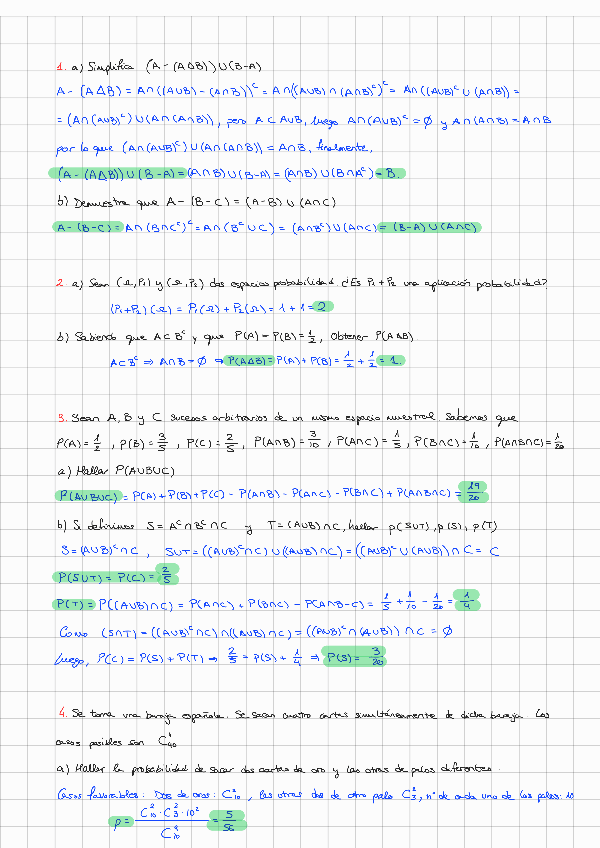 1. a) Simplifica (A - (A∆B)) ∪ (B-A)
A - (A∆B) = A∩((A∪B) - (A∩B))ᶜ = A∩((A∪B) ∩ (A∩B)ᶜ)ᶜ = A∩((A∪B)ᶜ ∪ (A∩B)) =
= (A∩(A∪B)ᶜ) ∪ (A∩(A∩B)), pero A ⊂ A∪B, luego A∩(A∪B)ᶜ = Ø y A∩(A∩B) = A∩B
por lo que (A∩(A∪B)ᶜ) ∪ (A∩(A∩B)) = A∩B, finalmente,
(A - (A∆B)) ∪ (B-A) = (A∩B) ∪ (B-A) = (A∩B) ∪ (B∩Aᶜ) = B.
b) Demuestra que A - (B-C) = (A-B) ∪ (A∩C)
A - (B-C) = A∩(B∩Cᶜ)ᶜ = A∩(Bᶜ∪C) = (A∩Bᶜ) ∪ (A∩C) = (B-A) ∪ (A∩C)
2. a) Sean (Ω, P₁) y (Ω, P₂) dos espacios probabilidad. ¿Es P₁+P₂ una aplicación probabilidad?
(P₁+P₂)(Ω) = P₁(Ω) + P₂(Ω) = 1 + 1 = 2
b) Sabiendo que A⊂Bᶜ y que P(A) = P(B) = 1/2, obtener P(A∆B)
A⊂Bᶜ ⇒ A∩B = Ø ⇒ P(A∆B) = P(A) + P(B) = 1/2 + 1/2 = 1.
3. Sean A, B y C sucesos arbitrarios de un mismo espacio muestral. Sabemos que
P(A) = 1/2, p(B) = 3/5, P(C) = 2/5, P(A∩B) = 3/10, P(A∩C) = 1/5, P(B∩C) = 1/10, P(A∩B∩C) = 1/20
a) Hallar P(A∪B∪C)
P(A∪B∪C) = P(A) + P(B) + P(C) - P(A∩B) - P(A∩C) - P(B∩C) + P(A∩B∩C) = 19/20
b) Si definimos S = Aᶜ∩Bᶜ∩C y T = (A∪B)∩C, hallar p(S∪T), p(S), p(T)
S = (A∪B)ᶜ∩C, S∪T = ((A∪B)ᶜ∩C) ∪ ((A∪B)∩C) = ((A∪B)ᶜ ∪ (A∪B)) ∩ C = C
P(S∪T) = P(C) = 2/5
P(T) = P((A∪B)∩C) = P(A∩C) + P(B∩C) - P(A∩B∩C) = 1/5 + 1/10 - 1/20 = 1/4
Como (S∩T) = ((A∪B)ᶜ∩C) ∩ ((A∪B)∩C) = ((A∪B)ᶜ∩(A∪B)) ∩ C = Ø
luego, P(C) = P(S) + P(T) ⇒ 2/5 = P(S) + 1/4 ⇒ P(S) = 3/20
4. Se toma una baraja española. Se sacan cuatro cartas simultáneamente de dicha baraja. Los
casos posibles son C₄₀⁴
a) Hallar la probabilidad de sacar dos cartas de oro y las otras de palos diferentes.
Casos favorables: Dos de oros: C₁₀², las otras dos de otro palo C₃², nº de cada uno de los palos: 10
p = C₁₀²·C₃²·10² / C₁₀⁴ = 5/56